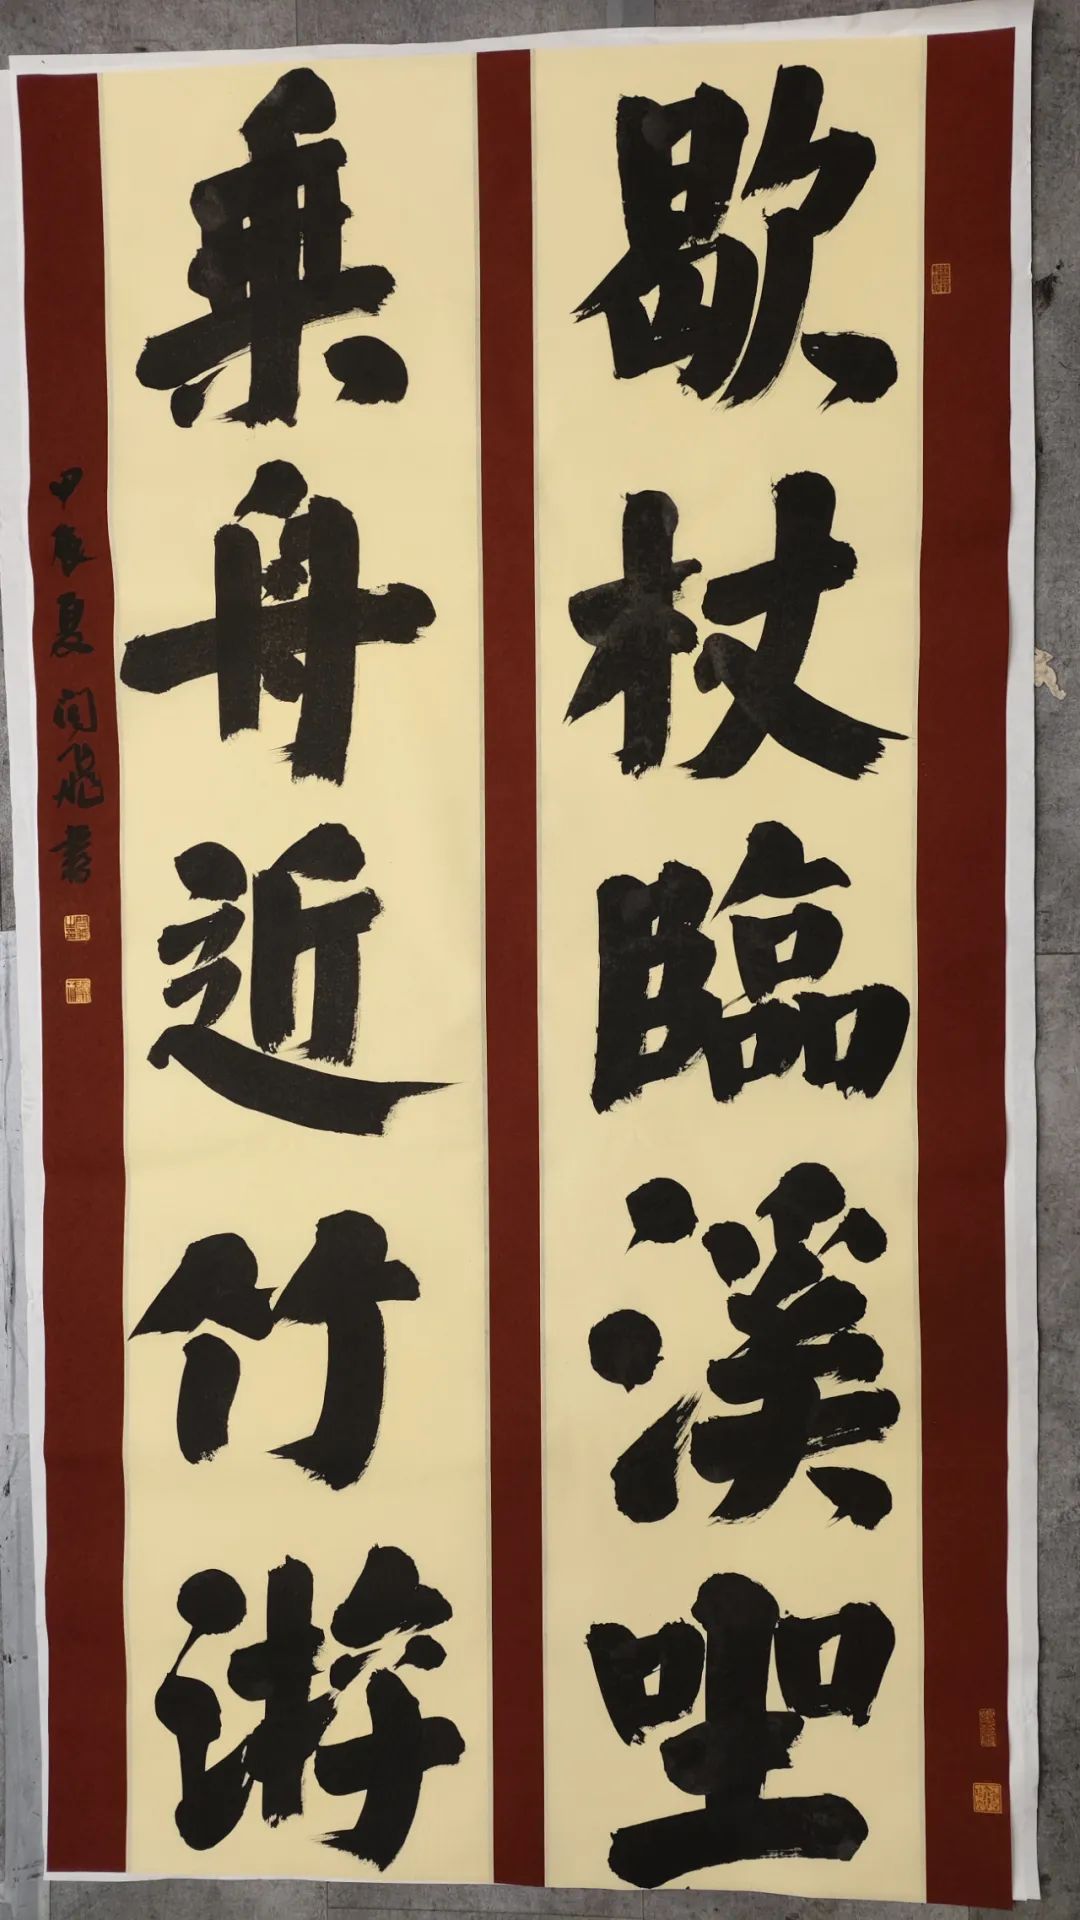 歇杖臨溪坐
乗舟近竹游
甲辰夏 飛書